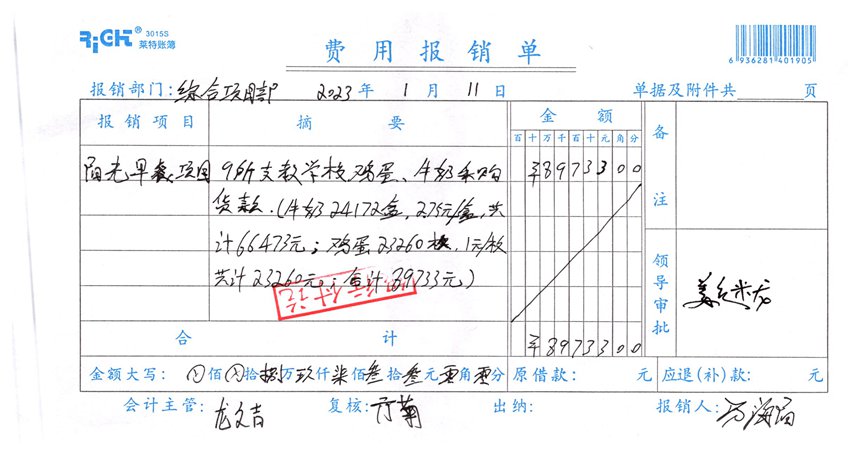 RiCH® 3015S
莱特账簿
费用报销单
6 936281 401905
报销部门: 综合项目部 2023 年 1 月 11 日 单据及附件共 页
报销项目 摘要 金额 备注
百 十 万 千 百 十 元 角 分
阳光早餐项目 9所支教学校鸡蛋、牛奶采购 ¥8973300
货款.(牛奶24172盒,2.75元/盒,共
计66473元;鸡蛋23260枚,1元/枚
共计23260元;合计89733元)
领导审批
合计 ¥8973300
金额大写: 佰 拾 捌 万 玖 仟 柒 佰 叁 拾 叁 元 零 角 零 分 原借款: 元 应退(补)款: 元
会计主管: 龙文吉 复核: 出纳: 报销人: